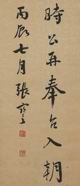 時公再奉召入朝
丙辰七月張謇